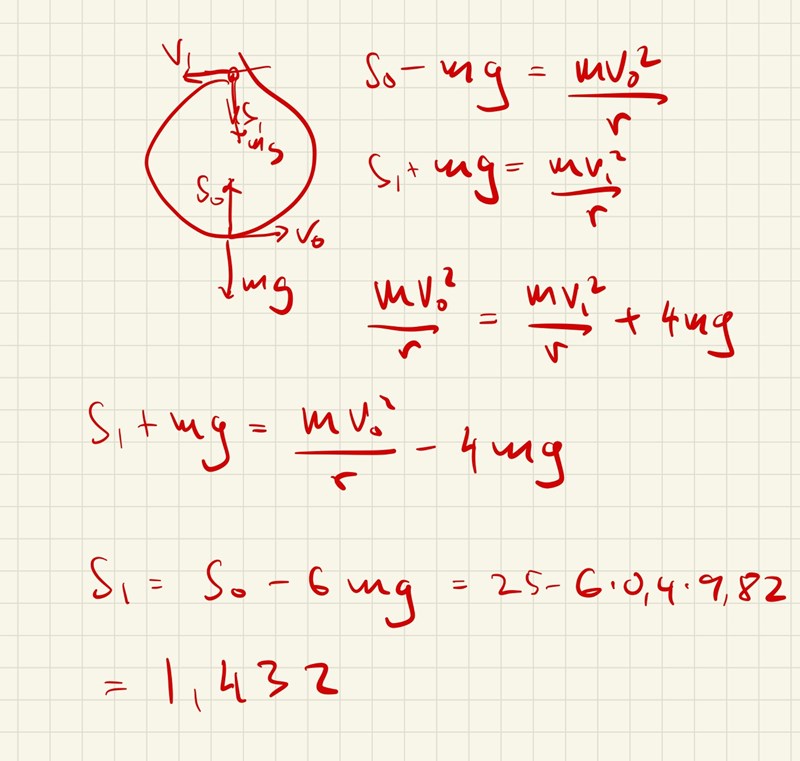 V₁
S₁
mg
S₀
V₀
mg
S₀ - mg = mv₀²/r
S₁ + mg = mv₁²/r
mv₀²/r = mv₁²/r + 4mg
S₁ + mg = mv₀²/r - 4mg
S₁ = S₀ - 6mg = 25 - 6·0,4·9,82
= 1,432